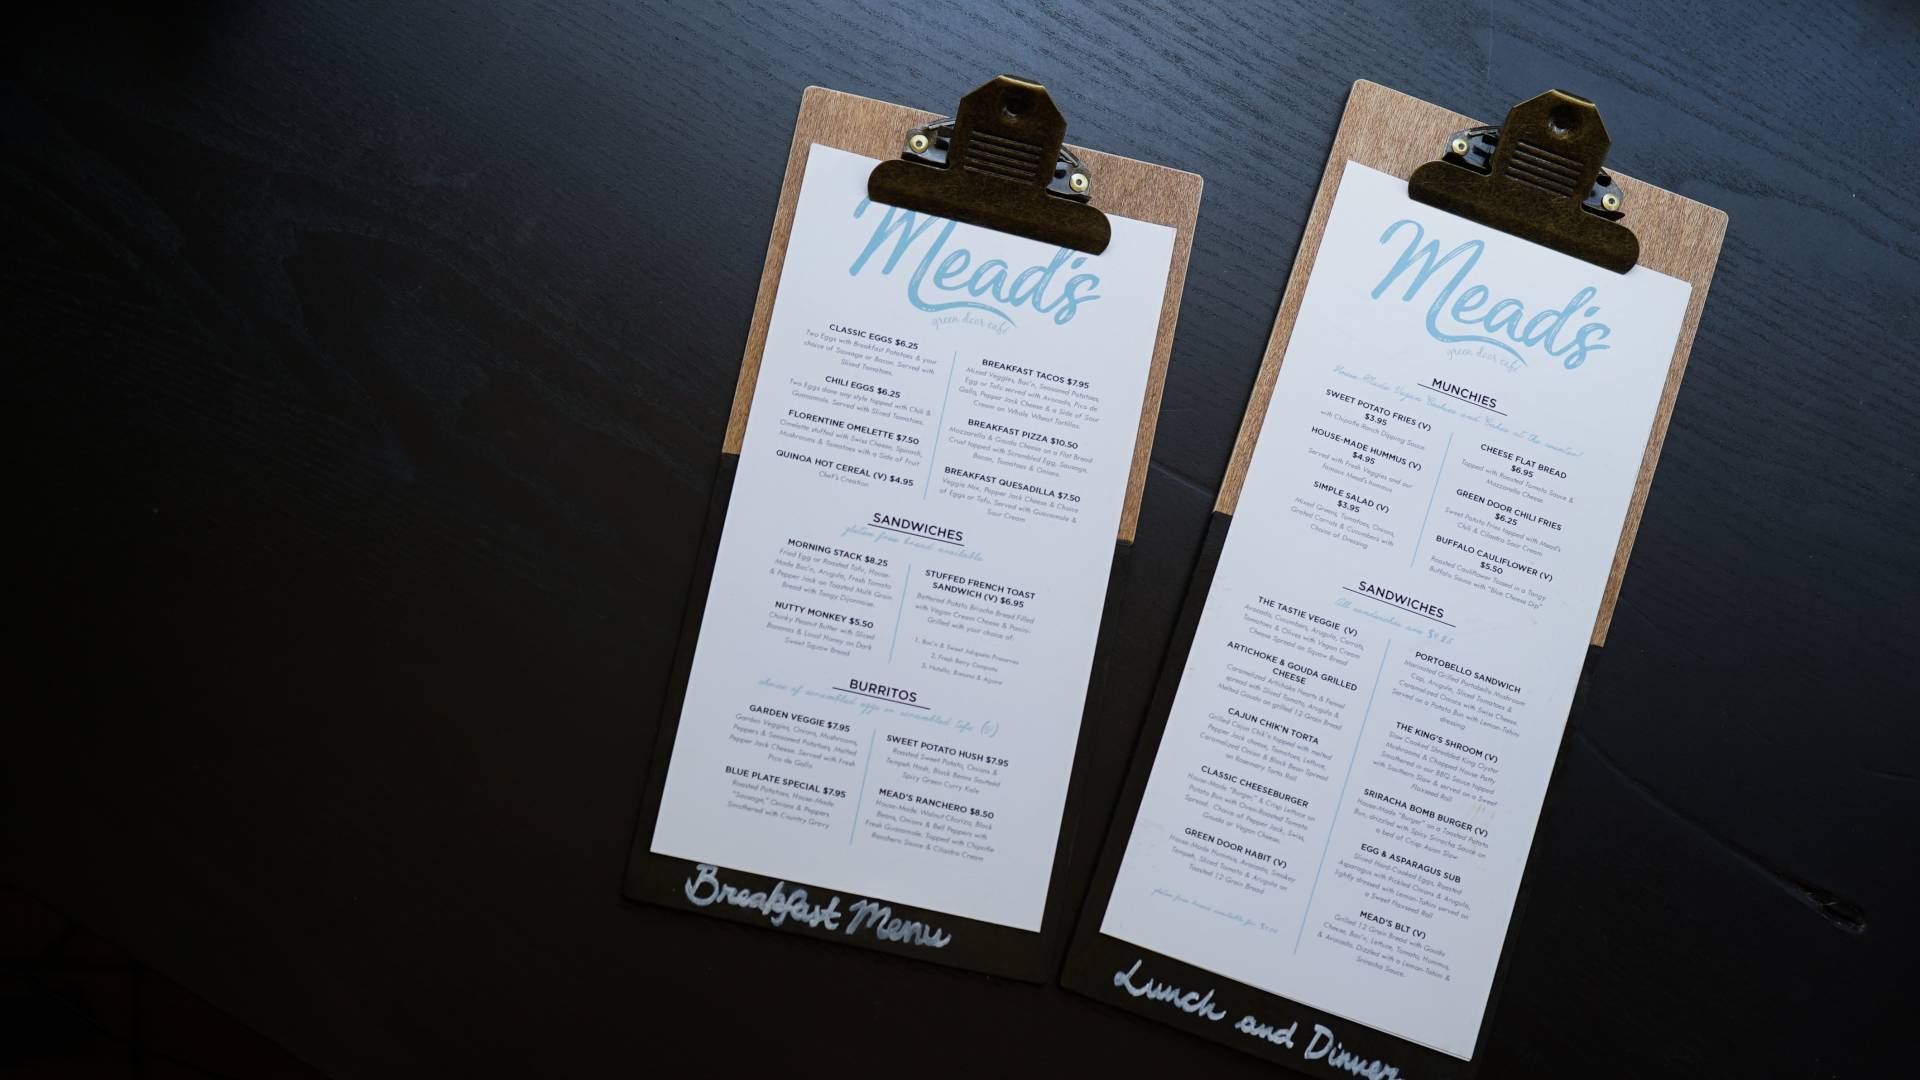 Mead's
green door café
CLASSIC EGGS $6.25
Two Eggs with Breakfast Potatoes & your
choice of Sausage or Bacon. Served with
Sliced Tomatoes.
CHILI EGGS $6.25
Two Eggs done any style topped with Chili &
Guacamole. Served with Sliced Tomatoes.
FLORENTINE OMELETTE $7.50
Omelette stuffed with Swiss Cheese, Spinach,
Mushrooms & Tomatoes with a Side of Fruit
QUINOA HOT CEREAL (V) $4.95
Chef's Creation
BREAKFAST TACOS $7.95
Mixed Veggies, Bac'n, Seasoned Potatoes,
Egg or Tofu served with Avocado, Pico de
Gallo, Pepper Jack Cheese & a Side of Sour
Cream on Whole Wheat Tortillas.
BREAKFAST PIZZA $10.50
Mozzarella & Gouda Cheese on a Flat Bread
Crust topped with Scrambled Egg, Sausage,
Bacon, Tomatoes & Onions.
BREAKFAST QUESADILLA $7.50
Veggie Mix, Pepper Jack Cheese & Choice
of Eggs or Tofu. Served with Guacamole &
Sour Cream
SANDWICHES
gluten free bread available
MORNING STACK $8.25
Fried Egg or Roasted Tofu, House-
Made Bac'n, Arugula, Fresh Tomato
& Pepper Jack on Toasted Multi Grain
Bread with Tangy Dijonnaise.
NUTTY MONKEY $5.50
Chunky Peanut Butter with Sliced
Bananas & Local Honey on Dark
Sweet Squaw Bread
STUFFED FRENCH TOAST
SANDWICH (V) $6.95
Battered Potato Brioche Bread Filled
with Vegan Cream Cheese & Panini-
Grilled with your choice of:
1. Bac'n & Sweet Jalapeño Preserves
2. Fresh Berry Compote
3. Nutella, Banana & Agave
BURRITOS
choice of scrambled eggs or scrambled tofu (v)
GARDEN VEGGIE $7.95
Garden Veggies, Onions, Mushrooms,
Peppers & Seasoned Potatoes, Melted
Pepper Jack Cheese. Served with Fresh
Pico de Gallo
BLUE PLATE SPECIAL $7.95
Roasted Potatoes, House-Made
"Sausage," Onions & Peppers
Smothered with Country Gravy
SWEET POTATO HUSH $7.95
Roasted Sweet Potato, Onions &
Tempeh Hash, Black Beans Sauteéd
Spicy Green Curry Kale
MEAD'S RANCHERO $8.50
House-Made Walnut Chorizo, Black
Beans, Onions & Bell Peppers with
Fresh Guacamole, Topped with Chipotle
Ranchero Sauce & Cilantro Cream
Breakfast Menu
Mead's
green door café
MUNCHIES
House-Made Vegan Cookies and Cakes at the counter!
SWEET POTATO FRIES (V)
$3.95
with Chipotle Ranch Dipping Sauce
HOUSE-MADE HUMMUS (V)
$4.95
Served with Fresh Veggies and our
famous Mead's hummus
SIMPLE SALAD (V)
$3.95
Mixed Greens, Tomatoes, Onions,
Grated Carrots & Cucumbers with
Choice of Dressing
CHEESE FLAT BREAD
$6.95
Topped with Roasted Tomato Sauce &
Mozzarella Cheese
GREEN DOOR CHILI FRIES
$6.25
Sweet Potato Fries topped with Mead's
Chili & Cilantro Sour Cream
BUFFALO CAULIFLOWER (V)
$5.50
Roasted Cauliflower Tossed in a Tangy
Buffalo Sauce with "Blue Cheese Dip"
SANDWICHES
All sandwiches are
THE TASTIE VEGGIE (V)
Avocado, Cucumbers, Arugula, Carrots,
Tomatoes & Olives with Vegan Cream
Cheese Spread on Squaw Bread
ARTICHOKE & GOUDA GRILLED
CHEESE
Caramelized Artichoke Hearts & Fennel
spread with Sliced Tomato, Arugula &
Melted Gouda on grilled 12 Grain Bread
CAJUN CHIK'N TORTA
Grilled Cajun Chik'n topped with melted
Pepper Jack cheese, Tomatoes, Lettuce,
Caramelized Onion & Black Bean Spread
on Rosemary Torta Roll
CLASSIC CHEESEBURGER
House-Made "Burger" & Crisp Lettuce on
Potato Bun with Oven-Roasted Tomato
Spread. Choice of Pepper Jack, Swiss,
Gouda or Vegan Cheese.
GREEN DOOR HABIT (V)
House-Made Hummus, Avocado, Smokey
Tempeh, Sliced Tomato & Arugula on
Toasted 12 Grain Bread
gluten free bread available for
PORTOBELLO SANDWICH
Marinated Grilled Portobello Mushroom
Cap, Arugula, Sliced Tomatoes &
Caramelized Onions with Swiss Cheese,
Served on a Potato Bun with Lemon-Tahini
dressing
THE KING'S SHROOM (V)
Slow Cooked Shredded King Oyster
Mushrooms & Chopped House Patty
Smothered in our BBQ Sauce topped
with Southern Slaw & served on a Sweet
Flaxseed Roll
SRIRACHA BOMB BURGER (V)
House-Made "Burger" on a Toasted Potato
Bun, drizzled with Spicy Sriracha Sauce on
a bed of Crisp Asian Slaw
EGG & ASPARAGUS SUB
Sliced Hard-Cooked Eggs, Roasted
Asparagus with Pickled Onions & Arugula,
lightly dressed with Lemon-Tahini served on
a Sweet Flaxseed Roll
MEAD'S BLT (V)
Grilled 12 Grain Bread with Gouda
Cheese, Bac'n, Lettuce, Tomato, Hummus,
& Avocado, Dizzled with a Lemon-Tahini &
Sriracha Sauce.
Lunch and Dinner